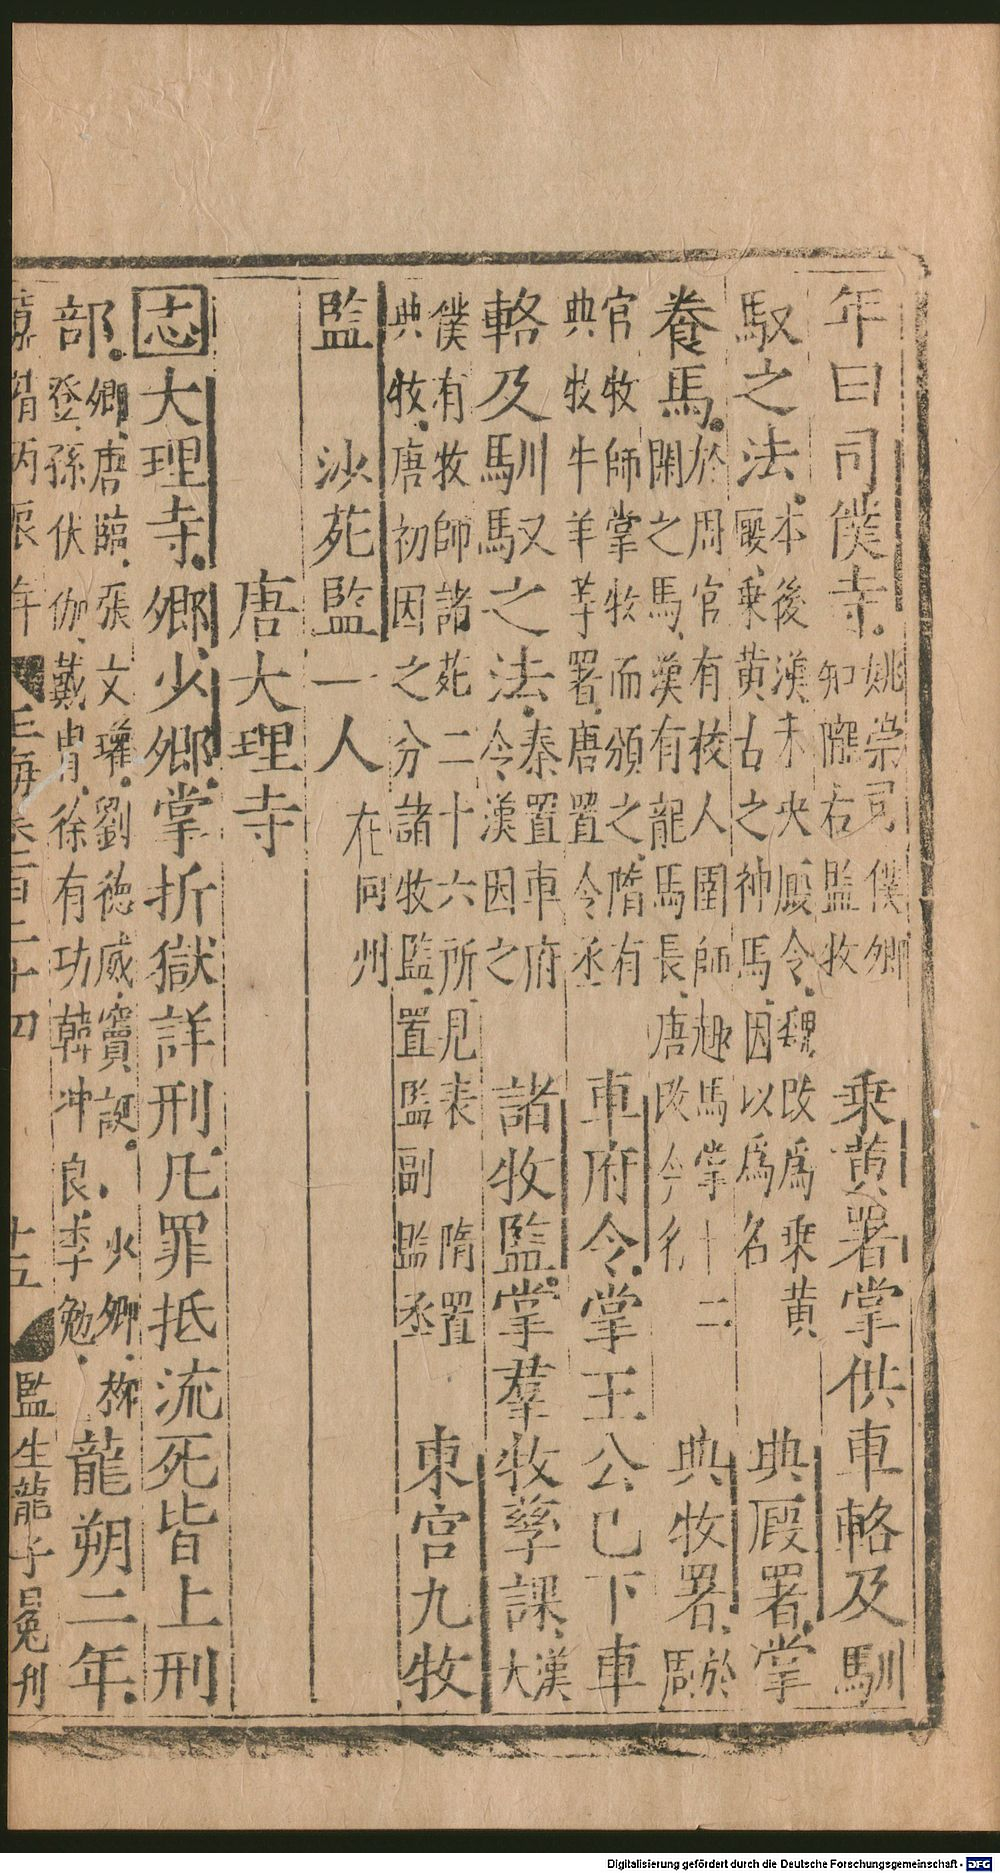 年曰司僕寺姚崇司僕卿知隴右監牧乘黄署掌供車輅及馴
馭之法本後漢未央廄令魏改爲乗黄廄乗黄古之神馬因以爲名典廄署掌
養馬於周官有校人圉師趣馬掌十二閑之馬漢有龍馬長唐改今名典牧署於周
官牧師掌牧而頒之隋有典牧牛羊等署唐置令丞車府令掌王公已下車
輅及馴馭之法秦置車府令漢因之諸牧監掌羣牧孳課漢太
僕有牧師諸苑三十六所見表隋置典牧唐初因之分諸牧監置監副監丞東宫九牧
監沙苑監一人在同州
唐大理寺
志大理寺卿少卿掌折獄詳刑凡罪抵流死皆上刑
部卿唐臨張文瓘劉德威竇誕少卿柳登孫伏伽戴冑徐有功韓冲良李勉龍朔二年
玉海卷一百二十四 十五 監生龍子冕刋
Digitalisierung gefördert durch die Deutsche Forschungsgemeinschaft - DFG